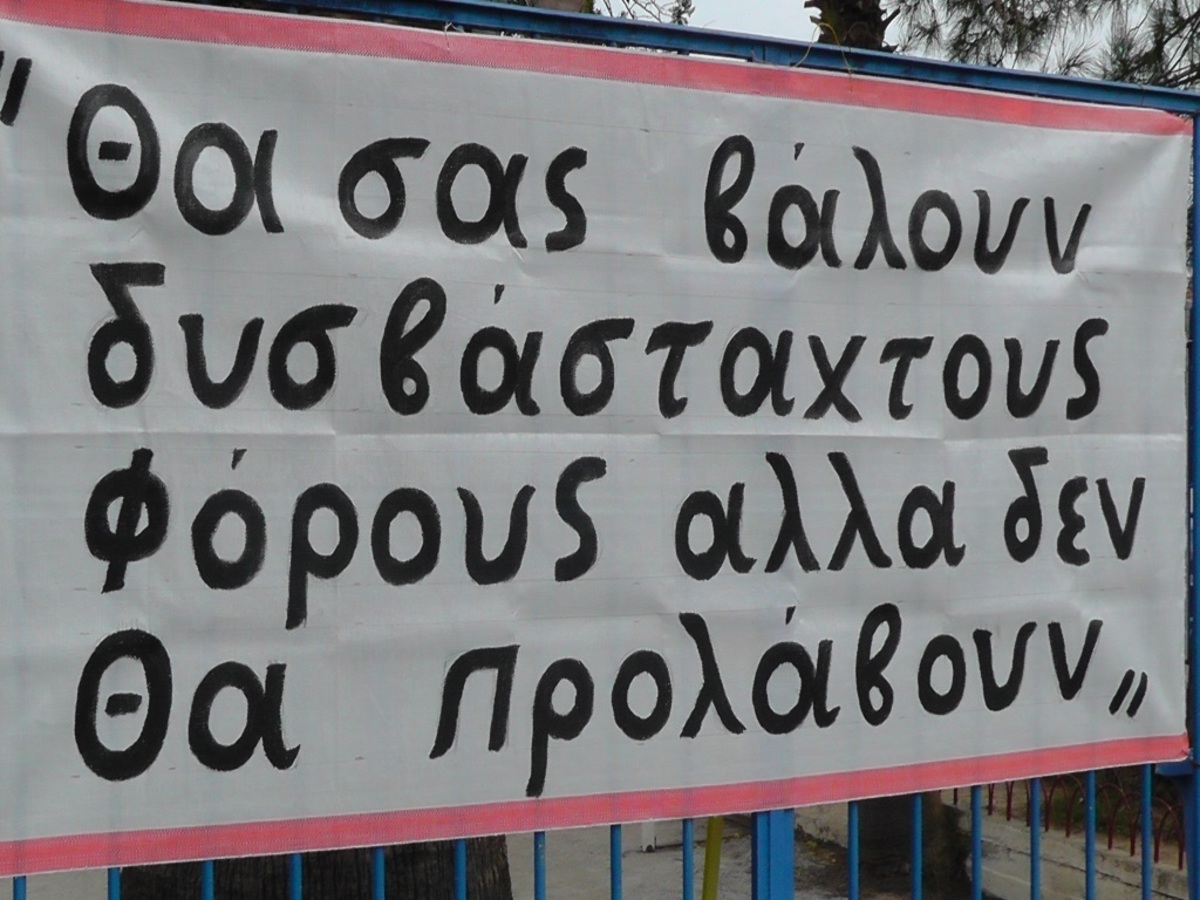 "Θα σας βάλουν
δυσβάσταχτους
φόρους αλλα δεν
Θα προλάβουν„